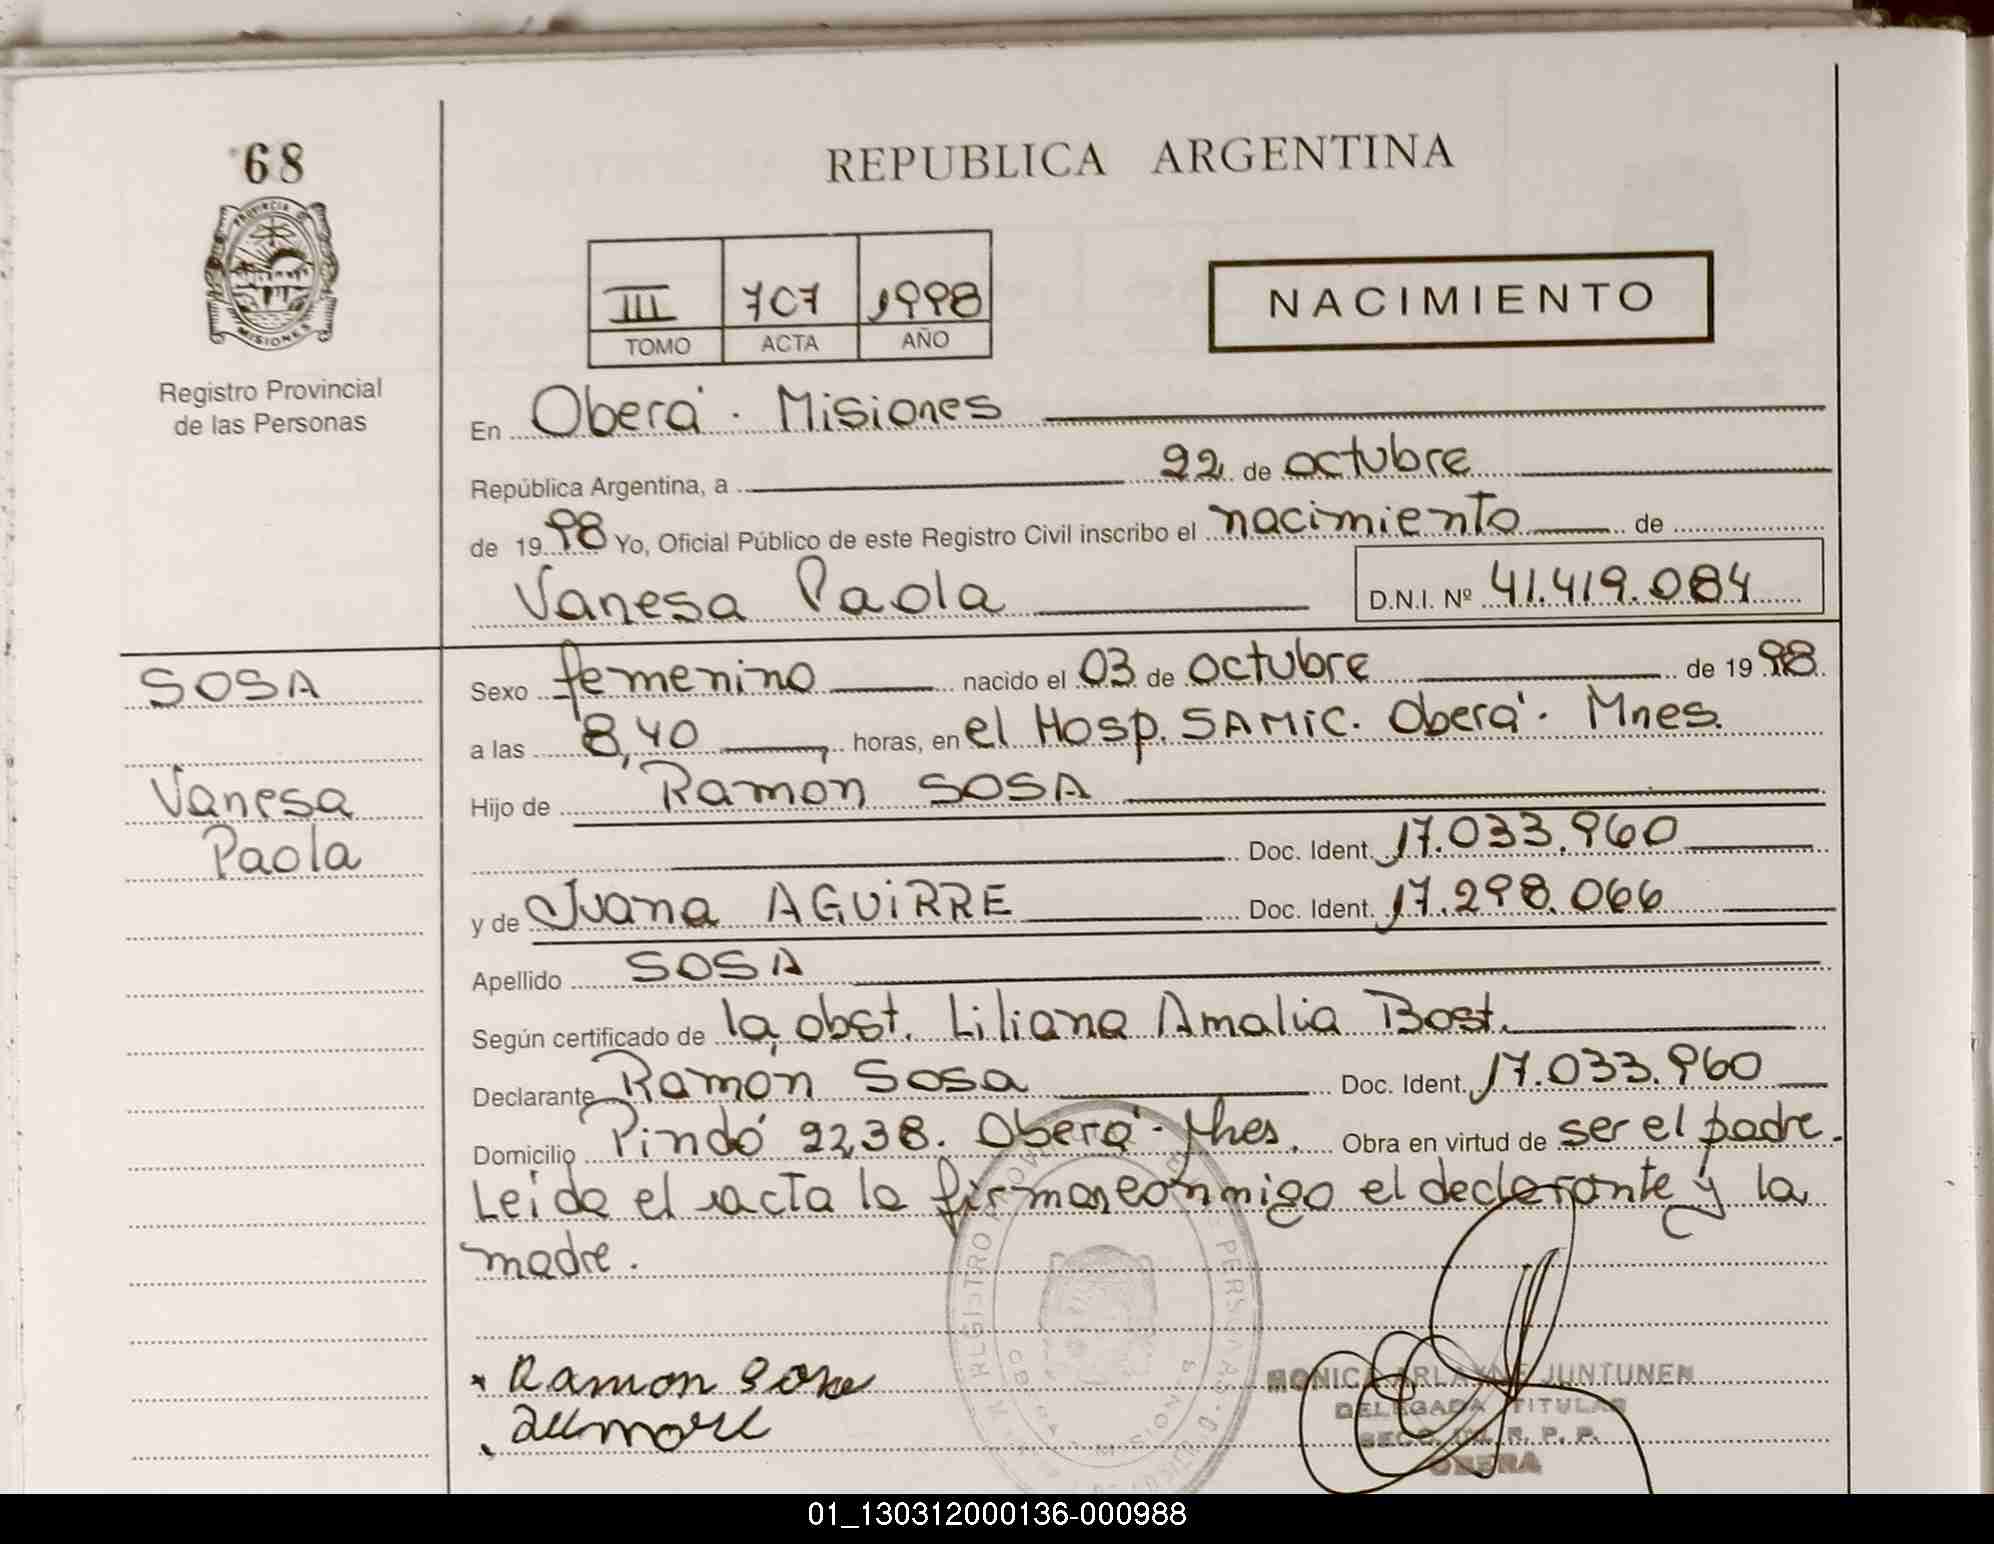 68
PROVINCIA D
MISIONES
Registro Provincial
de las Personas
REPUBLICA ARGENTINA
III 707 1998
TOMO ACTA AÑO
NACIMIENTO
En Oberá. Misiones
República Argentina, a 22 de octubre
de 1998 Yo, Oficial Público de este Registro Civil inscribo el nacimiento de
Vanesa Paola D.N.I. Nº 41.419.084
SOSA
Vanesa
Paola
Sexo femenino nacido el 03 de octubre de 1998
a las 8,40 horas, en el Hosp. SAMIC. Oberá. Mnes.
Hijo de Ramon SOSA
Doc. Ident. 17.033.960
y de Juana AGUIRRE Doc. Ident. 17.298.066
Apellido SOSA
Según certificado de la obst. Liliana Amalia Bost.
Declarante Ramón Sosa Doc. Ident. 17.033.960
Domicilio Pindó 2238. Oberá. Mnes. Obra en virtud de ser el padre.
Leida el acta la firman conmigo el declarante y la
madre.
Ramon Sosa
MONICA ARLAYNE JUNTUNEN
DELEGADA TITULAR
R. P. P.
OBERA
01_130312000136-000988